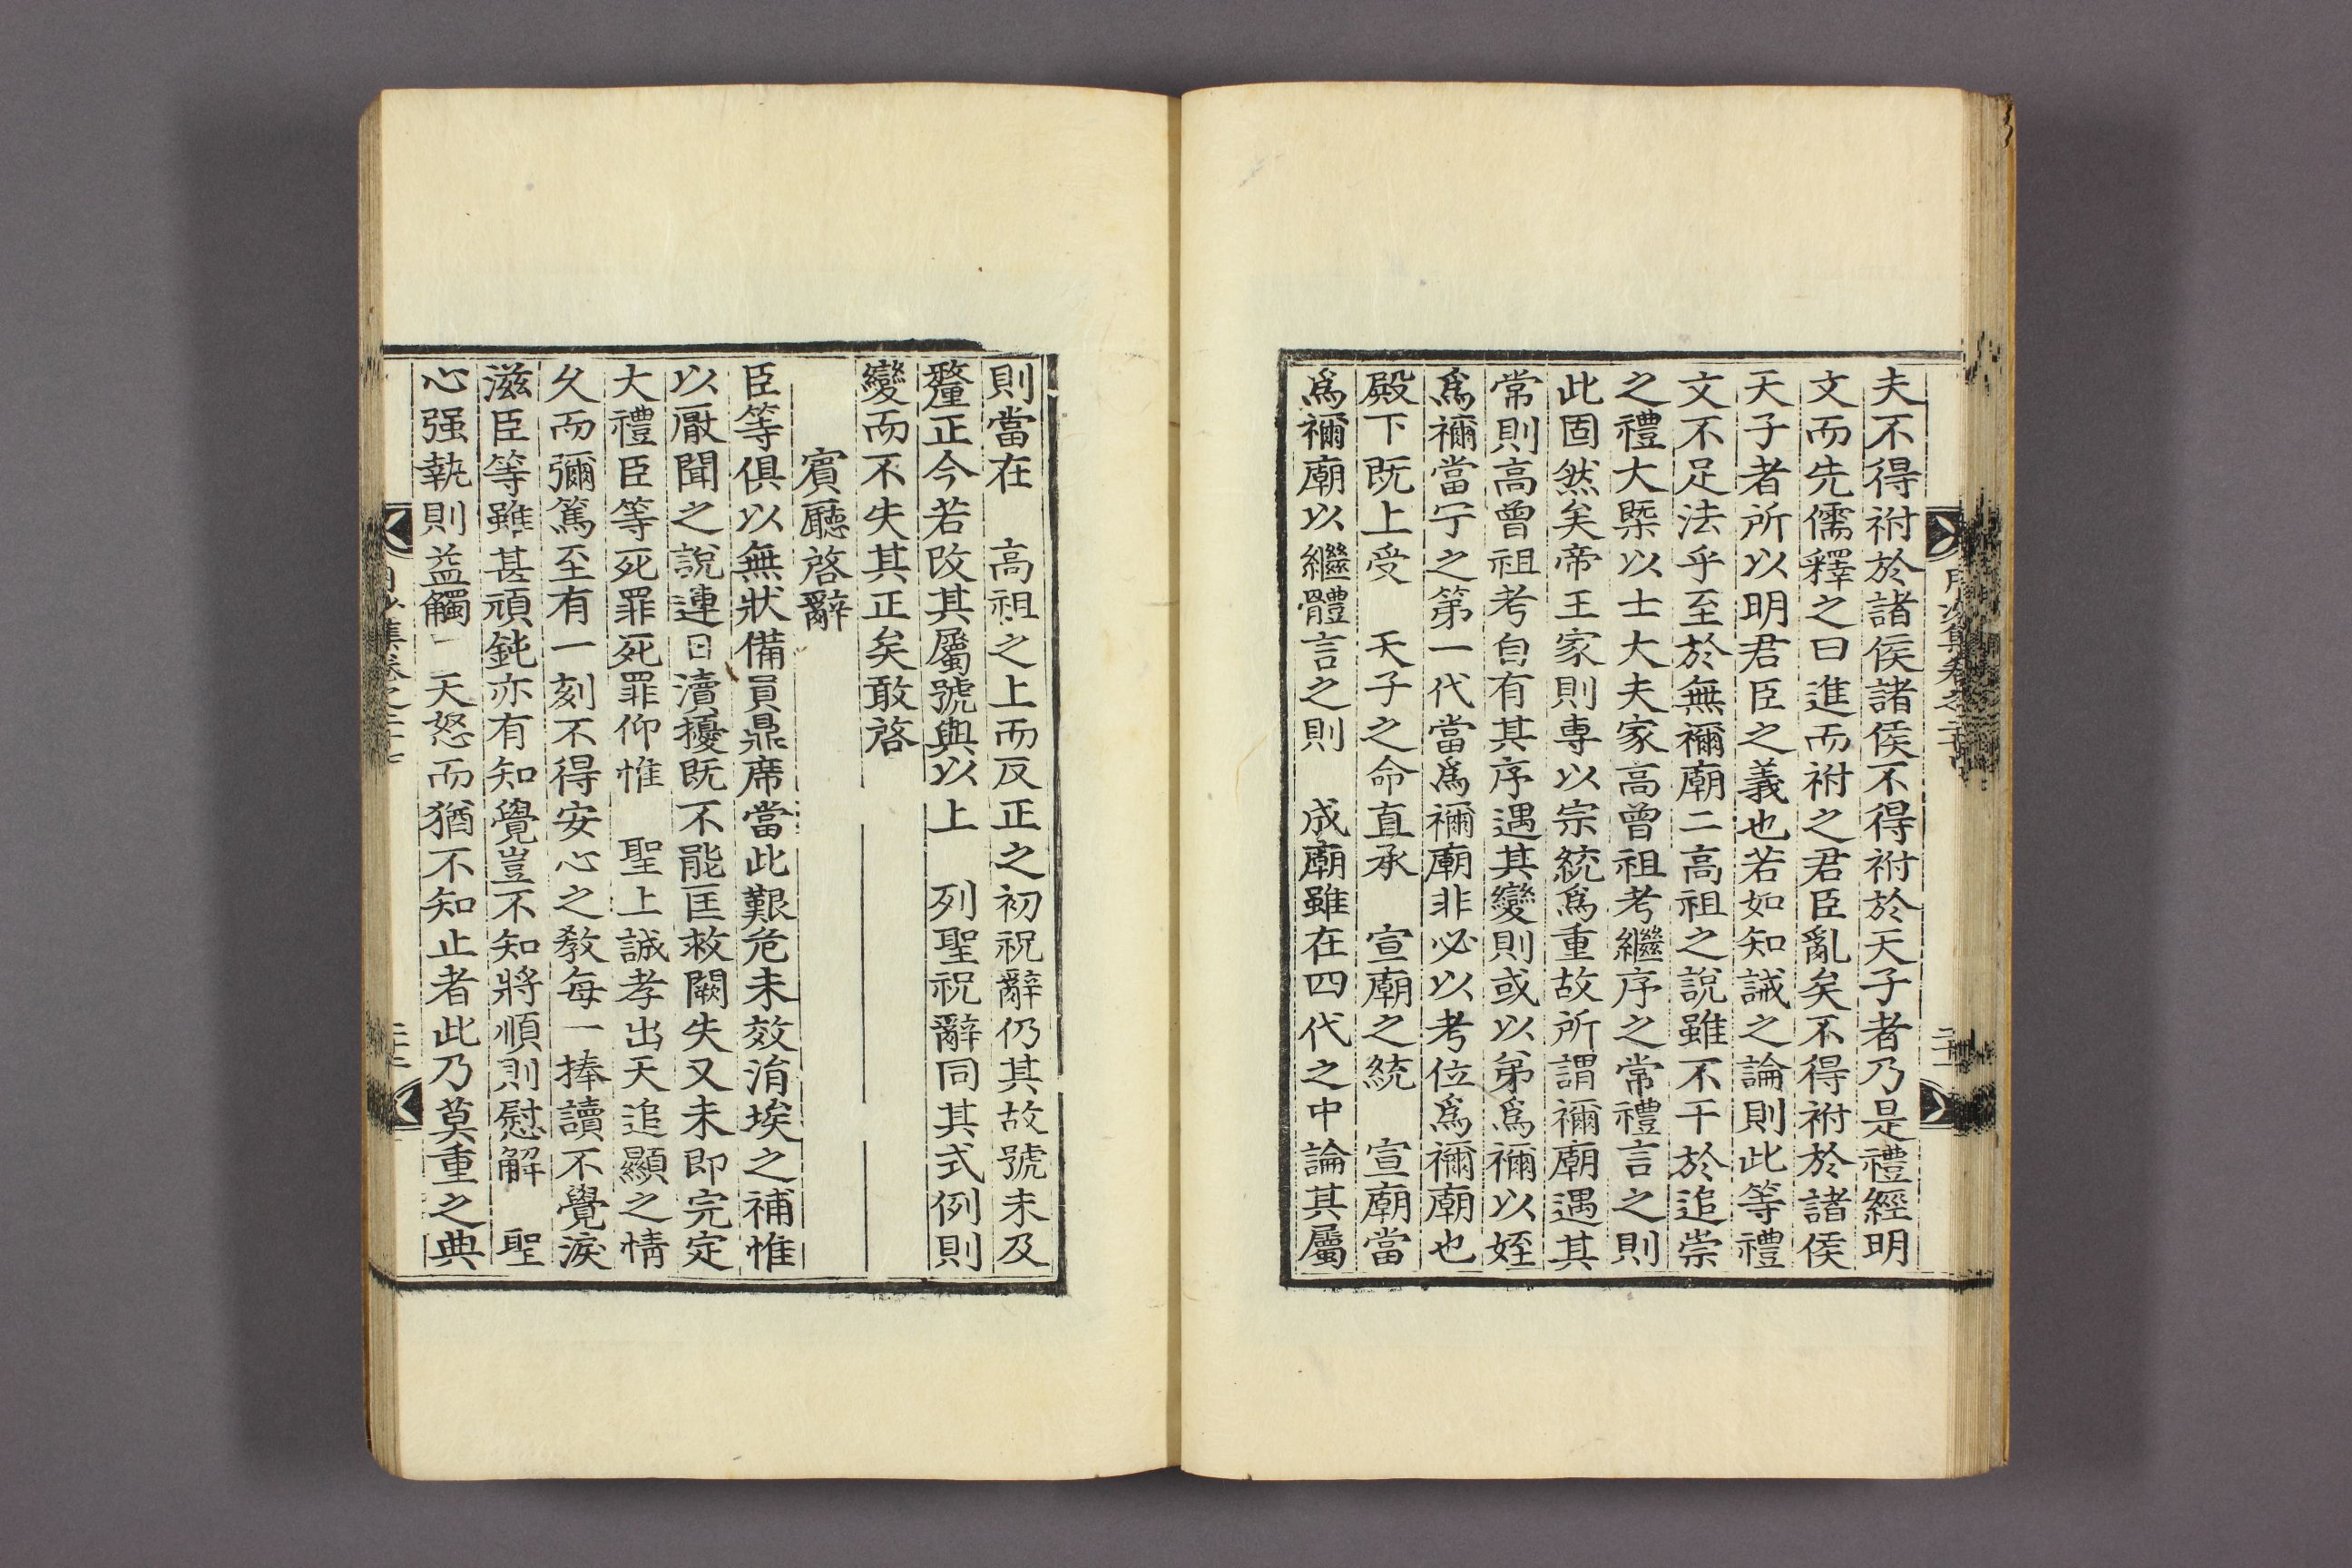 夫不得祔於諸侯諸侯不得祔於天子者乃是禮經明
文而先儒釋之曰進而祔之君臣亂矣不得祔於諸侯
天子者所以明君臣之義也若如知誡之論則此等禮
文不足法乎至於無禰廟二高祖之說雖不干於追崇
之禮大槩以士大夫家高曾祖考繼序之常禮言之則
此固然矣帝王家則專以宗統爲重故所謂禰廟遇其
常則高曾祖考自有其序遇其變則或以弟爲禰以姪
爲禰當宁之第一代當爲禰廟非必以考位爲禰廟也
殿下既上受 天子之命直承 宣廟之統 宣廟當
爲禰廟以繼體言之則 成廟雖在四代之中論其屬
則當在 高祖之上而反正之初祝辭仍其故號未及
釐正今若改其屬號與以上 列聖祝辭同其式例則
變而不失其正矣敢啓
賓廳啓辭
臣等俱以無狀備員鼎席當此艱危未效涓埃之補惟
以厭聞之說連日瀆擾既不能匡救闕失又未即完定
大禮臣等死罪死罪仰惟 聖上誠孝出天追顯之情
久而彌篤至有一刻不得安心之教每一捧讀不覺淚
滋臣等雖甚頑鈍亦有知覺豈不知將順則慰解 聖
心强執則益觸 天怒而猶不知止者此乃莫重之典